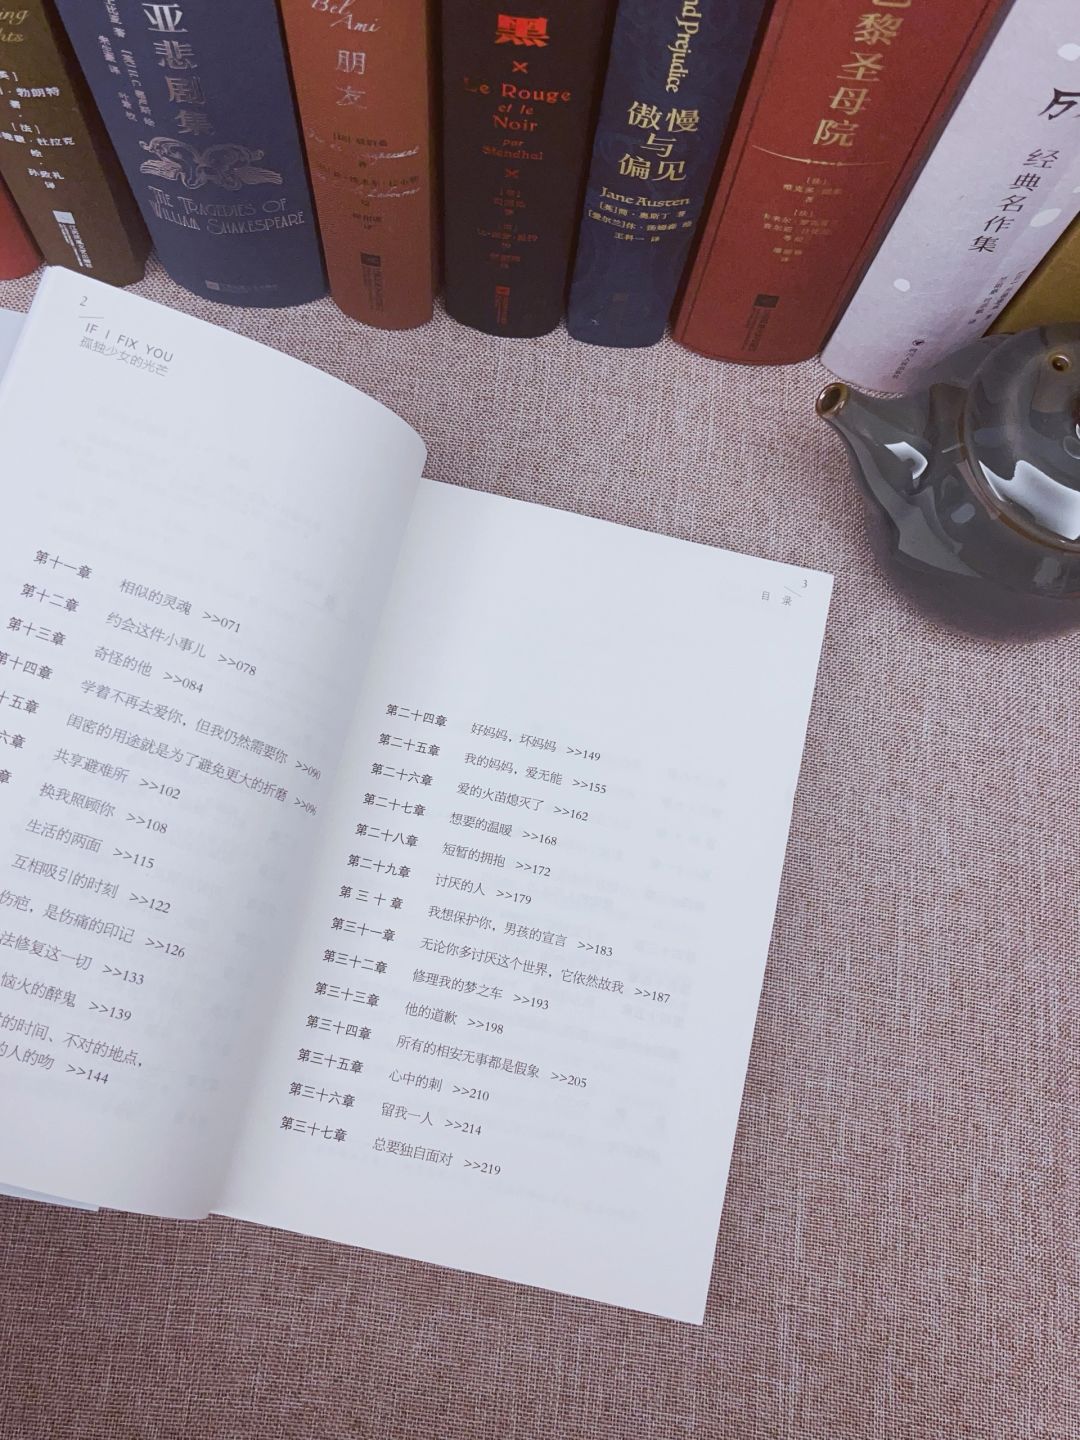 勃朗特
[法]
杜拉克
绘
孙致礼
译
亚悲剧集
THE TRAGEDIES OF
WILLIAM SHAKESPEARE
Bel
Ami
朋友
黑
×
Le Rouge
et le
Noir
par
Stendhal
×
nd Prejudice
傲慢
与
偏见
Jane Austen
[英]简·奥斯丁 著
王科一 译
黎圣母院
经典名作集
2
IF I FIX YOU
孤独少女的光芒
第十一章 相似的灵魂 >>071
第十二章 约会这件小事儿 >>078
第十三章 奇怪的他 >>084
第十四章 学着不再去爱你，但我仍然需要你 >>090
十五章 闺密的用途就是为了避免更大的折磨 >>096
六章 共享避难所 >>102
章 换我照顾你 >>108
生活的两面 >>115
互相吸引的时刻 >>122
伤疤，是伤痛的印记 >>126
法修复这一切 >>133
恼火的醉鬼 >>139
的时间、不对的地点，
的人的吻 >>144
3
目 录
第二十四章 好妈妈，坏妈妈 >>149
第二十五章 我的妈妈，爱无能 >>155
第二十六章 爱的火苗熄灭了 >>162
第二十七章 想要的温暖 >>168
第二十八章 短暂的拥抱 >>172
第二十九章 讨厌的人 >>179
第三十章 我想保护你，男孩的宣言 >>183
第三十一章 无论你多讨厌这个世界，它依然故我 >>187
第三十二章 修理我的梦之车 >>193
第三十三章 他的道歉 >>198
第三十四章 所有的相安无事都是假象 >>205
第三十五章 心中的刺 >>210
第三十六章 留我一人 >>214
第三十七章 总要独自面对 >>219